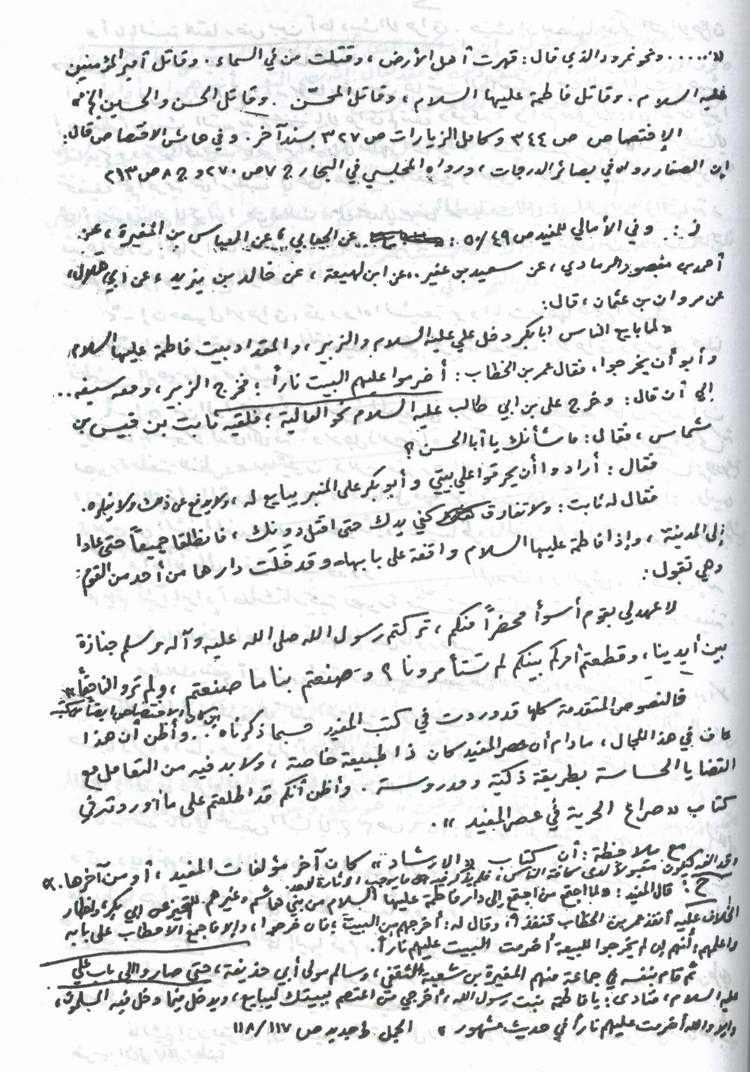 «..... ونحو نمرود الذي قال: قهرت أهل الأرض، وقتلت من في السماء. وقاتل أمير المؤمنين
عليه السلام. وقاتل فاطمة عليها السلام، وقاتل المحسّن. وقاتل الحسن والحسين الخ»
الاختصاص ص ٣٤٤ وكامل الزيارات ص ٣٢٧ بسند آخر. وفي هامش الاختصاص قال:
إن الصفار رواه في بصائر الدرجات، ورواه المجلسي في البحار ج ٧ ص ٢٧٠ و ج ٨ ص ٢١٣
: وفي الأمالي للمفيد ص ٥/٤٩: عن الجعابي، عن العباس من المغيرة، عن
أحمد من منصور الرمادي، عن سعيد بن عفير، عن ابن لهيعة، عن خالد بن يزيد، عن ابي هلال،
عن مروان بن عثمان، قال:
«لما بايع الناس أبا بكر دخل علي عليه السلام والزبير، والمقداد بيت فاطمة عليها السلام
وأبو أن يخرجوا، فقال عمر بن الخطاب: أضرموا عليهم البيت ناراً؛ فخرج الزبير، ومعه سيفه..
إلى أن قال: وخرج علي بن ابي طالب عليه السلام نحو العالية؛ فلقيه ثابت بن قيس بن
شماس، فقال: ما شأنك يا أبا الحسن؟
فقال: أرادوا أن يحرقوا علي بيتي وأبو بكر على المنبر يبايع له، ولا يدفع عن ذلك ولا ينكره.
فقال له ثابت: ولا تفارق كفي يدك حتى اقتل دونك، فانطلقا جميعاً حتى عادا
إلى المدينة، وإذا فاطمة عليها السلام واقفة على بابها، وقد خلت دارها من أحد من القوم
وهي تقول:
لا عهد لي بقوم أسوأ محضراً منكم، تركتم رسول الله صلى الله عليه وآله وسلم جنازة
بين أيدينا، وقطعتم أمركم بينكم لم تستأمرونا؟ وصنعتم بنا ما صنعتم، ولم تروا لنا حقاً»
فالنصوص المتقدمة كلها قد وردت في كتب المفيد حسبما ذكرناه.. وأظن أن هذا
كاف في هذا المجال، مادام أن عصر المفيد كان ذا طبيعة خاصة، ولا بد فيه من التعامل مع
القضايا الحساسة بطريقة ذكية ومدروسة. وأظن أنكم قد اطلعتم على ما أورد قدر في
كتاب «صراع الحرية في عصر المفيد».
مع ملاحظة: أن كتاب «الإرشاد» كان آخر مؤلفات المفيد، أو من آخرها.
ج: قال المفيد: «لما اجتمع من اجتمع إلى دار فاطمة عليها السلام من بني هاشم وغيرهم للتحيز عن أبي بكر، وإظهار
الخلاف عليه أنفذ عمر بن الخطاب قنفذاً، وقال له: أخرجهم من البيت، فإن خرجوا، وإلا فاجمع الأحطاب على بابه
واعلمهم أنهم إن لم يخرجوا للبيعة أضرمت البيت عليهم ناراً.
ثم قام بنفسه في جماعة منهم المغيرة بن شعبة الثقفي، وسالم مولى أبي حذيفة، حتى صاروا إلى باب علي
عليه السلام، فنادى: يا فاطمة بنت رسول الله، أخرجي من اعتصم ببيتك ليبايع، ويدخل فيما دخل فيه المسلمون،
وإلا والله أضرمت عليهم ناراً في حديث مشهور» الجمل ط جديد ص ١١٧/١١٨